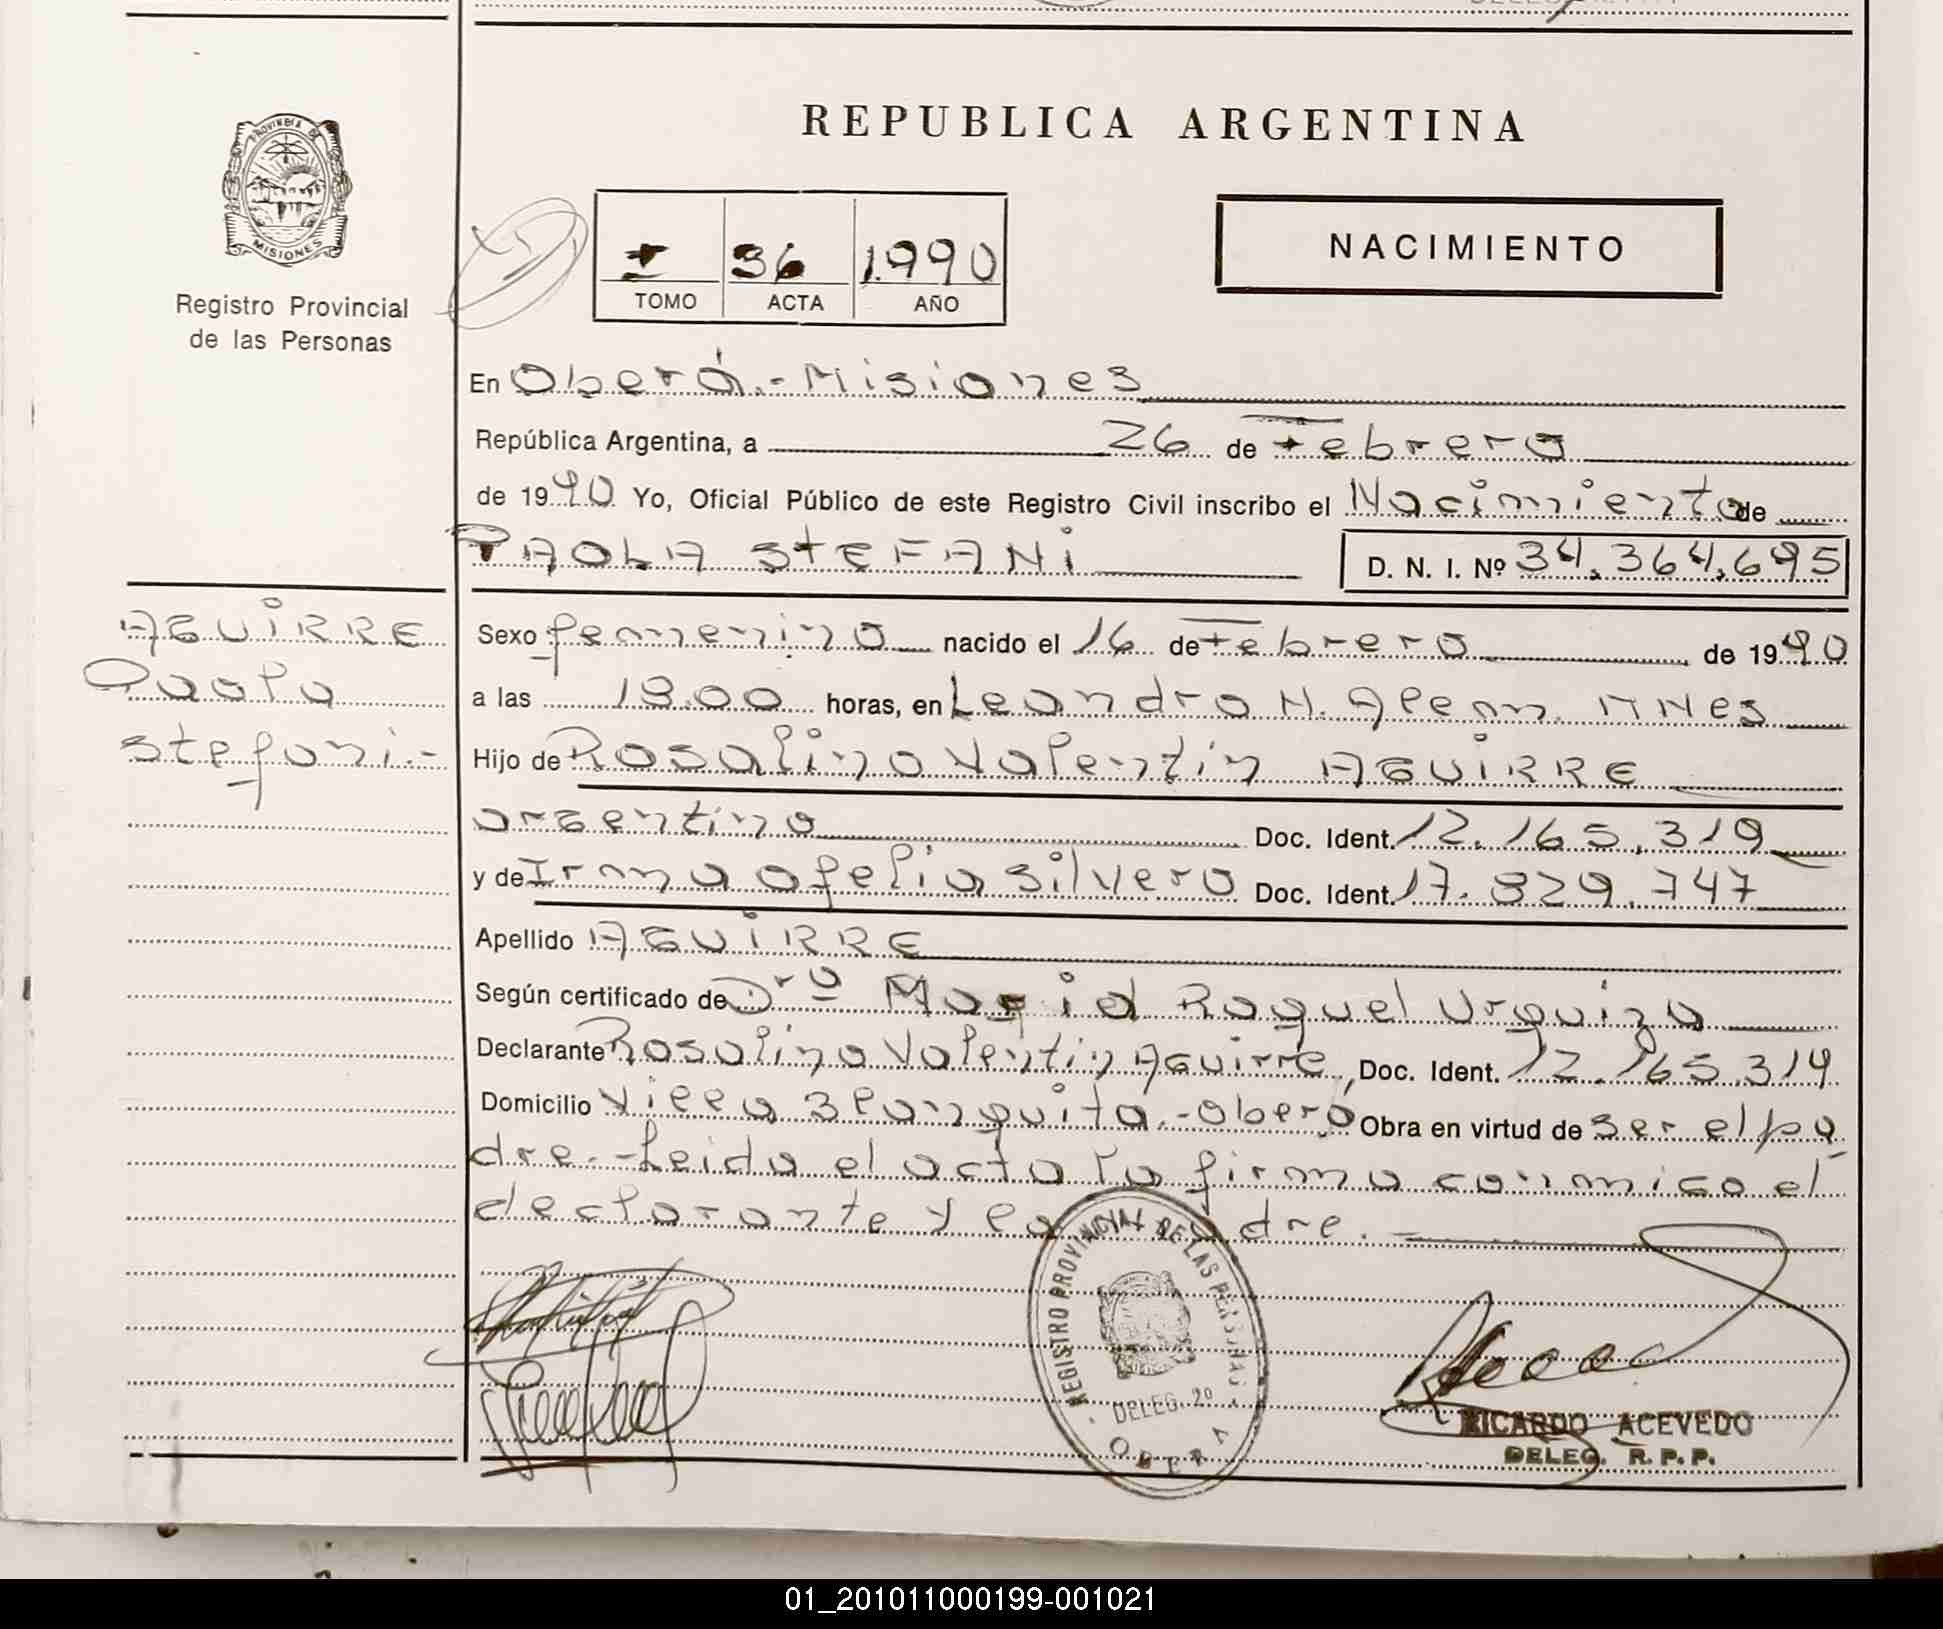 PROVINCIA DE
MISIONES
Registro Provincial
de las Personas
REPUBLICA ARGENTINA
I 36 1.990
TOMO ACTA AÑO
NACIMIENTO
En Oberá.- Misiones
República Argentina, a 26 de Febrero
de 1990 Yo, Oficial Público de este Registro Civil inscribo el Nacimiento de
PAOLA StEFANi
D. N. I. Nº 34.364.695
AGUiRRE
Paola
Stefani.-
Sexo femenino nacido el 16 de Febrero de 1990
a las 13.00 horas, en Leandro N. Alem. MNes
Hijo de Rosalino Valentín AGUiRRE
argentino Doc. Ident. 12.165.319
y de Irma Ofelia Silvero Doc. Ident. 17.829.747
Apellido AGUiRRE
Según certificado de Dra Maria Raquel Urquiza
Declarante Rosalino Valentin Aguirre, Doc. Ident. 12.165.319
Domicilio Villa Blanquita.-Oberá Obra en virtud de ser el pa
dre.-Leida el acta la firma conmigo el
declarante y la dre.
REGISTRO PROVINCIAL DE LAS PERSONAS
DELEG. 2º
OBERA
RICARDO ACEVEDO
DELEG. R. P. P.
01_201011000199-001021